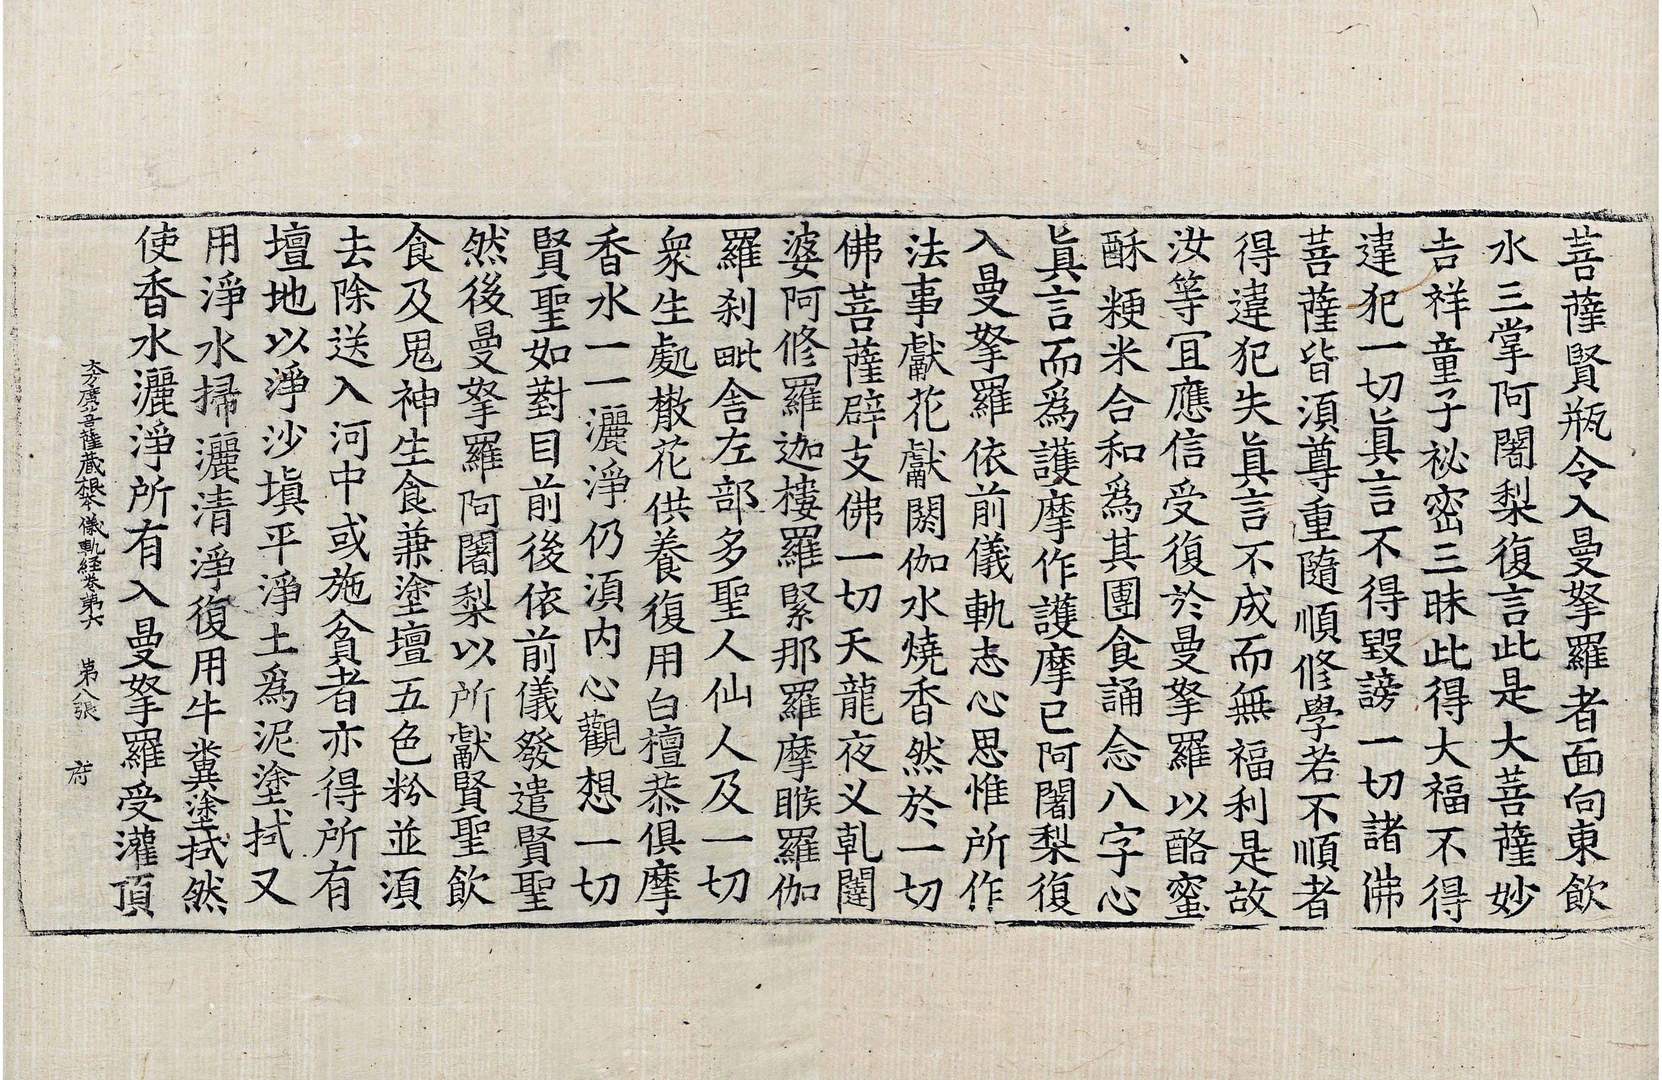 菩薩賢瓶令入曼拏羅者面向東飲
水三掌阿闍梨復言此是大菩薩妙
吉祥童子祕密三昧此得大福不得
違犯一切眞言不得毀謗一切諸佛
菩薩皆須尊重隨順修學若不順者
得違犯失眞言不成而無福利是故
汝等冝應信受復於曼拏羅以酪蜜
酥粳米合和爲其團食誦念八字心
眞言而爲護摩作護摩已阿闍梨復
入曼拏羅依前儀軌志心思惟所作
法事獻花獻閼伽水燒香然於一切
佛菩薩辟支佛一切天龍夜义乹闥
婆阿修羅迦樓羅緊那羅摩睺羅伽
羅刹毗舍左部多聖人仙人及一切
衆生處散花供養復用白檀恭俱摩
香水一一灑淨仍須内心觀想一切
賢聖如對目前後依前儀發遣賢聖
然後曼拏羅阿闍梨以所獻賢聖飲
食及鬼神生食兼塗壇五色粉並須
去除送入河中或施貧者亦得所有
壇地以淨沙塡平淨土爲泥塗拭又
用淨水掃灑清淨復用牛糞塗拭然
使香水灑淨所有入曼拏羅受灌頂
大方廣菩薩藏根本儀軌経卷第六 第八張 府